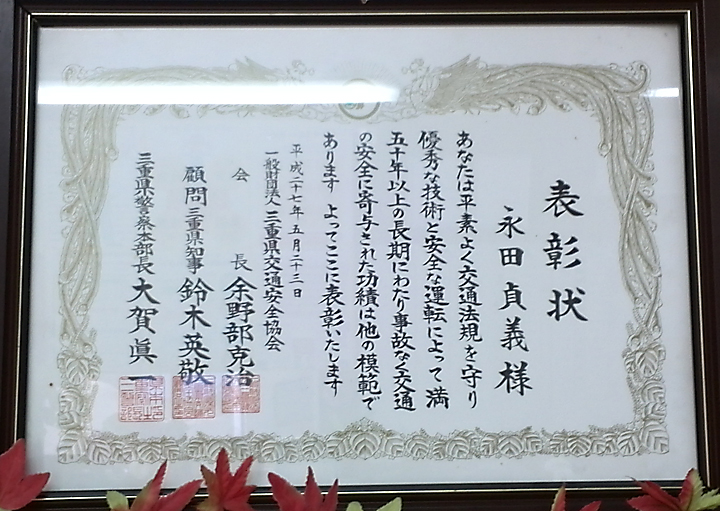 表彰状
永田貞義様
あなたは平素よく交通法規を守り
優秀な技術と安全な運転によって満
五十年以上の長期にわたり事故なく交通
の安全に寄与された功績は他の模範で
あります よってここに表彰いたします
平成二十七年五月二十三日
一般財団法人 三重県交通安全協会
会長 余野部克治
顧問 三重県知事 鈴木英敬
三重県警察本部長 大賀眞一